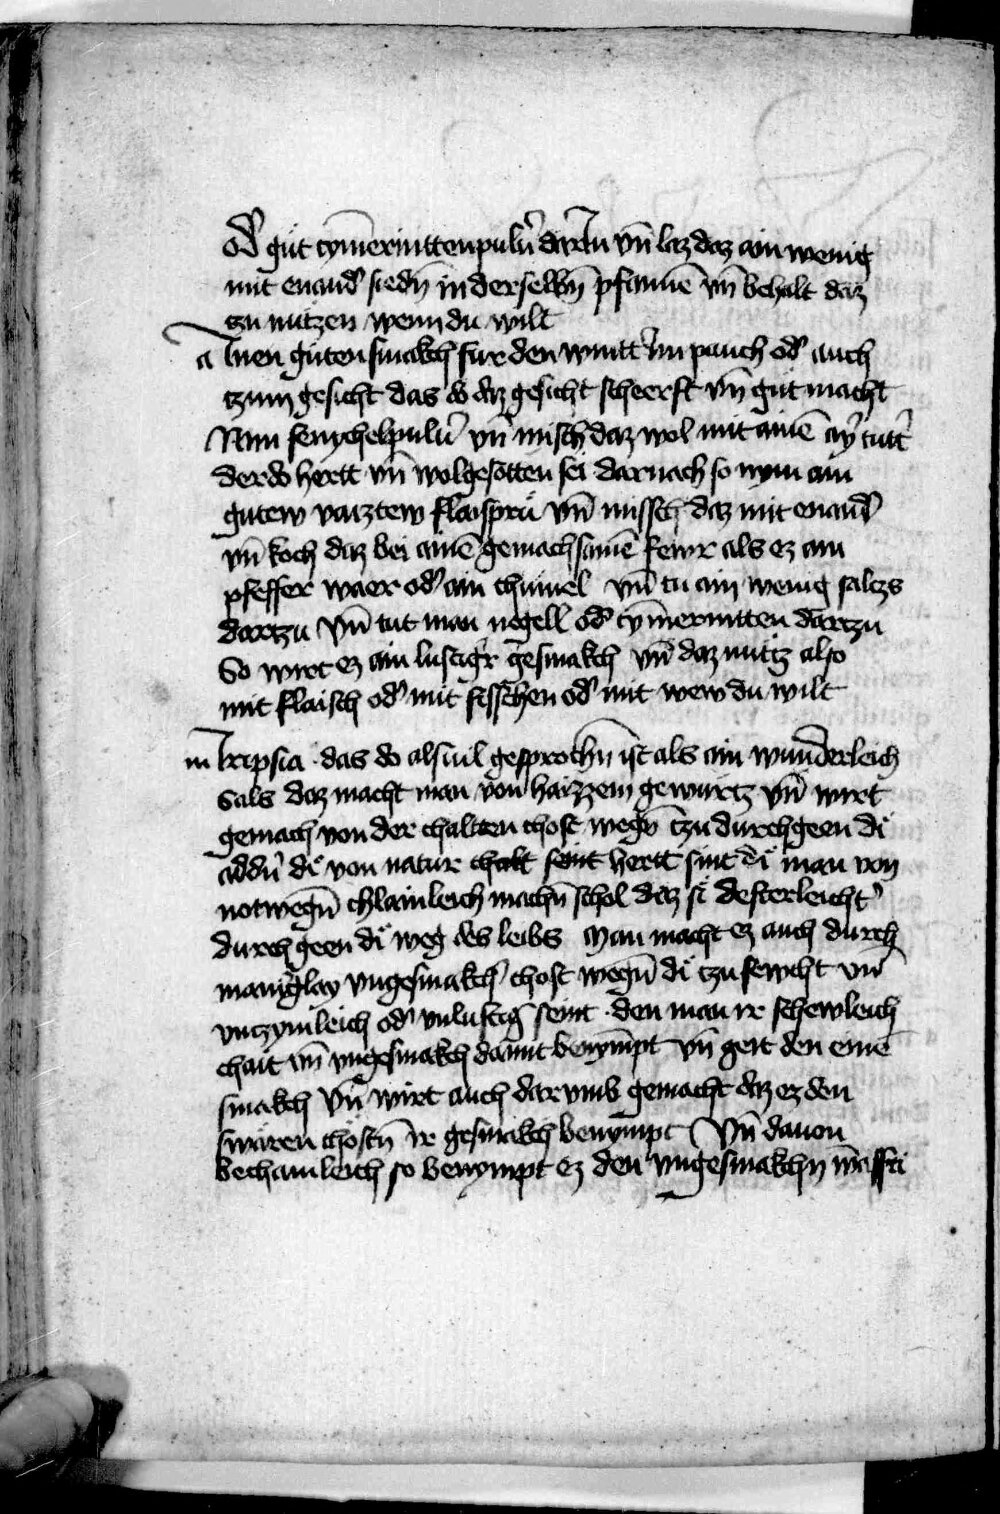 od᷑ gůt cymeriͤnttenpulu᷑ dartzu vn̄ laz daz ain wenig
mit enand᷑ siedn̄ in derselbn̄ pfannē vn̄ behalt daz
tzu nützen wenn du wilt
a Inen gůten smakch fur den wintt᷑ im pauch od᷑ auch
tzum gesicht das do daz gesicht scheerft vn̄ gůt macht
Nim fenychelpulu᷑ vn̄ misch daz wol mit ainē ay᷑ tutt᷑
der do hertt vn̄ wolgesotten sei darnach so nym ain
gutew vaiztew flaisprů vn̄ missch daz mit enand᷑
vn̄ koch daz bei ainē gemachsamē fewr als ez ain
pfeffer waer od᷑ ain chümel vn̄ tu ain wenig salczs
dartzu vn̄ tut man negell᷑ od᷑ cym̄erintten dartzu
So wirt ez ain lustig᷑r gesmakch vn̄ daz nütz also
mit flaisch od᷑ mit fisschen od᷑ mit wew du wilt
m Iripsia · das do alsuil gesprochn̄ ist als ain wunderleich
Sals daz macht man von haizzem gewürtz vn̄ wirt
gemach von der chaltten chost wegn̄ tzu durchgeen di
addn᷑ di von natur chalt seint hertt sint di man von
notwegn̄ chlainleich machn̄ schol daz si desterleicht᷑
durch geen di weg des leibs Man macht ez auch durch
manig᷑lay vngesmakch᷑ chost wegn̄ di tzu fewcht vn̄
vntzymleich od᷑ vnlustig seint · den man ir schewleich
chait vn̄ vngesmakch damit benympt vn̄ geit den einē
smakch vn̄ wirt auch darvmb gemacht daz ez den
swären chostn̄ ir gesmakch benympt Vn̄ dauon
bechamleich so benympt ez den vngesmakchn̄ waffti